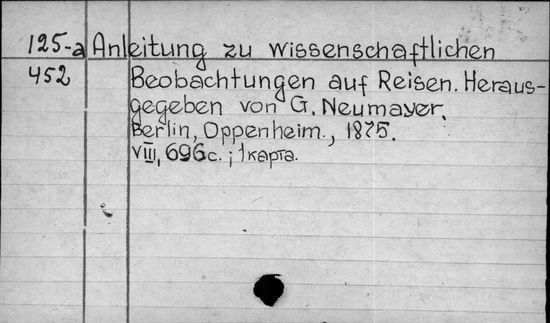 125-a Anleitung zu wissenschaftlichen
452 Beobachtungen auf Reisen. Heraus-
gegeben von G. Neumayer.
Berlin, Oppenheim., 1875.
VIII, 696с. ; 1 карта.